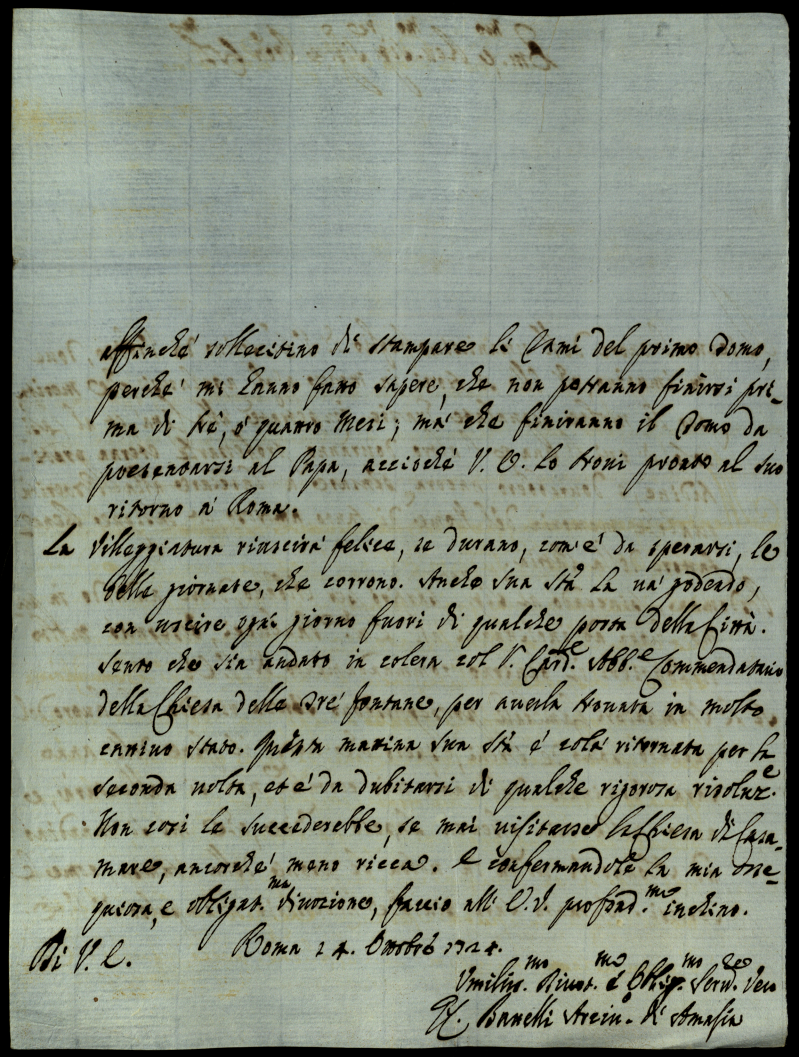 affinché sollecitino di stampare li Rami del primo Tomo,
perche' mi hanno fatto sapere, che non potranno finirsi pri-
ma di trè, ò quattro Mesi; mà che finiranno il Tomo da
presentarsi al Papa, acciochè V. E. lo trovi pronto al suo
ritorno à Roma.
La Villeggiatura riuscirà felice, se durano, com'è da sperarsi, le
belle giornate, che corrono. Anche sua Stà la và godendo,
con uscire ogni giorno fuori di qualche porta della Città.
Sento che sia andato in colera col S. Card.e Abb.e Commendatario
della Chiesa delle Trè fontane, per averla trovata in molto
cattivo stato. Questa mattina sua Stà è colà ritornata per la
seconda volta, et è da dubitarsi di qualche rigorosa risoluz.e
Non così le succederebbe, se mai visitasse la Chiesa di Casa-
mare, ancorchè meno ricca. E confermandole la mia osse-
quiosa, e obligat.ma divozione, faccio all' E. V. profond.mo inchino.
Di V. E. Roma 14. Ottobre 1724.
Umiliss.mo Divot.mo é Oblig.mo Serv.re Vero